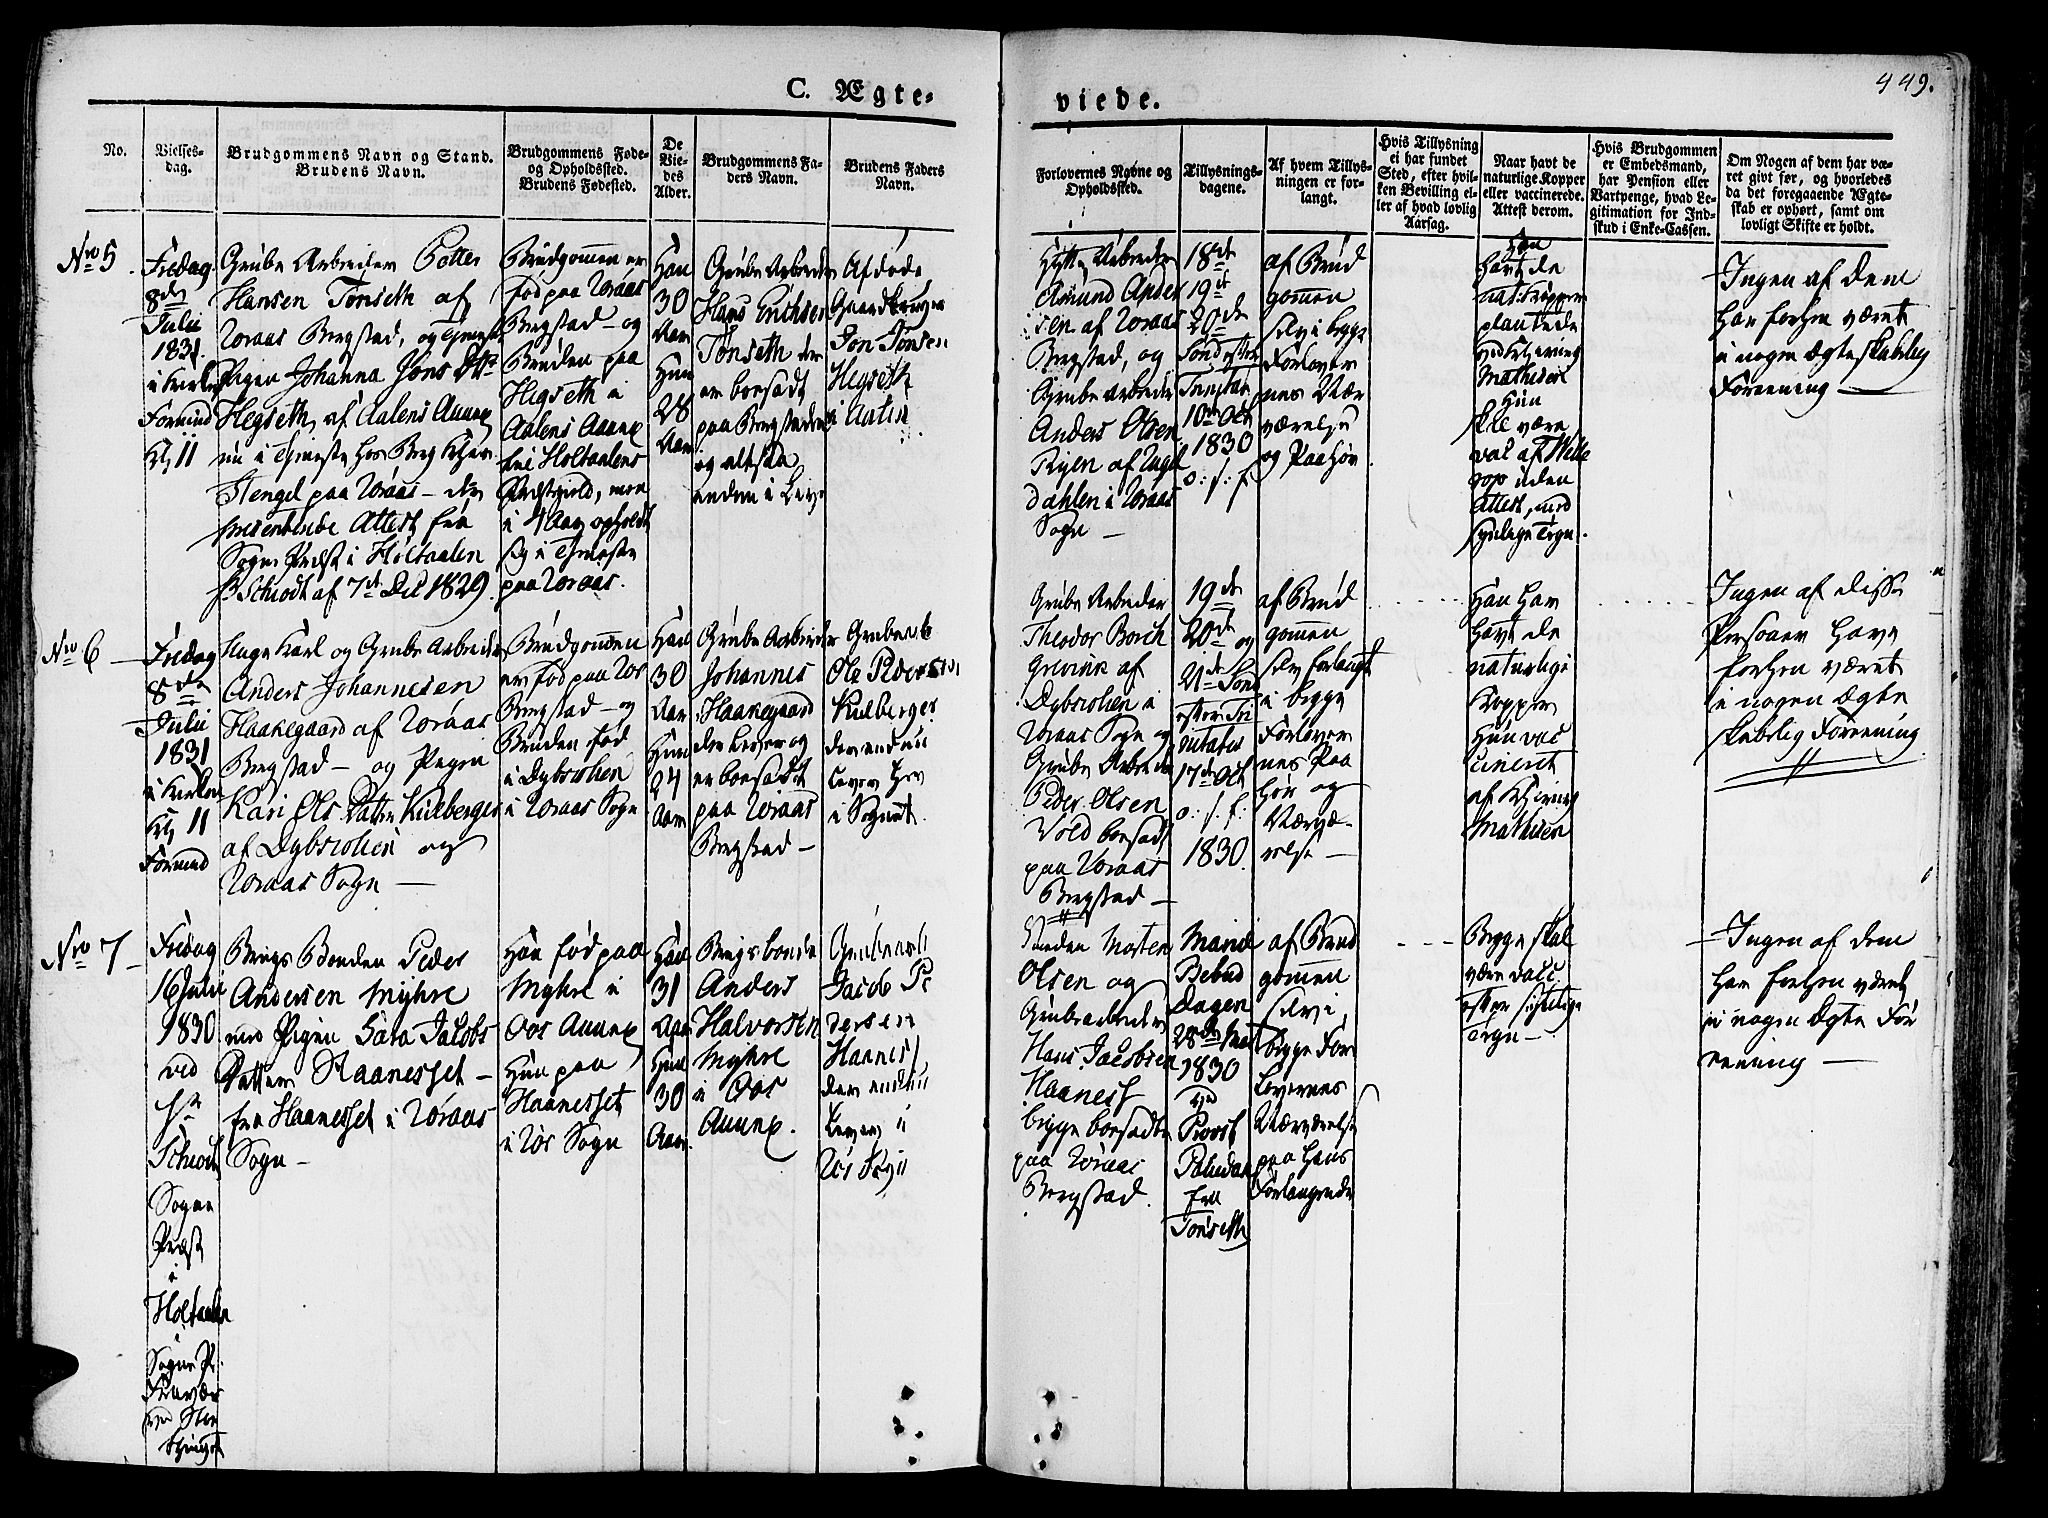 449.
C. Ægte-
viede.
No.
Vielses-
dag.
Brudgommens Navn og Stand.
Brudens Navn.
Brudgommens Føde-
og Opholdssted.
Brudens Fødested.
De
Vie-
des
Alder.
Brudgommens Fa-
ders Navn.
Brudens Faders
Navn.
Forlovernes Navne og
Opholdssted.
Tillysnings-
dagene.
Af hvem Tillys-
ningen er for-
langt.
Hvis Tillysning
ei har fundet
Sted, efter hvil-
ken Bevilling el-
ler af hvad lovlig
Aarsag.
Naar havt de
naturlige Kopper
eller vaccinerede.
Attest derom.
Hvis Brudgommen
er Embedsmand,
har Pension eller
Vartpenge, hvad Le-
gitimation for Ind-
skud i Enke-Cassen.
Om Nogen af dem har væ-
ret givt før, og hvorledes
da det foregaaende Ægte-
skab er ophørt, samt om
lovligt Skifte er holdt.
No 5.
Fredag
8de
Julii
1831.
i Kirken
Formid
Kl 11
Grube Arbeider Petter
Hansen Tønseth af
Røraas Bergstad, og
Pigen Johanna Jons Dtr
Hegseth af Aalens Annex
nu i Tjeneste hos
Stengel paa Røraas - der
Attest fra
Sogne Præst i Holtaalen
Hr Schiødt af 7de Dec 1829.
Brudgommen er
fød paa Røraas
Bergstad - og
Bruden paa
Hegseth i
Aalens Annex
til Holtaalens
Præstegield, men
i 4 Aar opholdt
sig i Tjeneste
paa Røraas.
Han
30
Aar
Hun
28
Aar
Grube Arbeider
Hans Erichsen
Tønseth der
er boesadt
paa Bergstaden
og altsaa
endnu i Live
Afdøde
Gaardbruger
Jon Jonsen
Hegseth
i Aalen
Hytte Arbeider
Amund Ander
sen af Røraas
Bergstad, og
Grube Arbeider
Anders Olsen
Ryen af
dahlen i Røraas
Sogn -
18de
19de
20de
Sond efter
Trinitatis
10de Oct
1830
o: s. f.
af Brud
gommen
selv i begge
Forlover
nes Nær
værelse
og Paahør
Han
havt de
nat: Kopper
plantede
ved Khierning
Mathisen
Hun
skal være
vac af
uden
Attest, med
synlige Tegn.
Ingen af dem
har forhen været
i nogen ægteskabelig
Foreening -
No 6 -
Fredag
8de
Julii
1831
i Kirken
Kl 11
Formid
Unge Karl og Grube Arbeider
Anders Johannesen
Haakegaard af Røraas
Bergstad - og Pigen
Kari Ols Datter Kulberget
af Dybsiøen og
Røraas Sogn -
Brudgommen
er fød paa Rør
Bergstad - og
Bruden fød
i Dybsiøen
i Røraas Sogn
Han
30
Aar
Hun
24
Aar
Grube Arbeider
Johannes
Haakegaard
der lever og
er boesadt
paa Røraas
Bergstad -
Grubearb
Ole Pedersen
Kulberget
der endnu
lever her
i Sognet.
Grube Arbeider
Theodor Borch
grevink af
Dybsiøen i
Røraas Sogn og
Grube Arbeider
Peder Olsen
Vold boesadt
paa Røraas
Bergstad -
19de
20de og
21de Sond
efter Tri
nitatis
17de Oct
o: s. f:
1830.
af Brud
gommen
selv forlangt
i begge
Forlover
nes Paa
hør og
Nærvæ-
relse -
Han har
havt de
naturlige
Kopper
Hun vac
cineret
af Khierning
Mathisen
Ingen af disse
Personer have
forhen været
i nogen Ægte
skabelig Foreening
No 7 -
Fredag
16 Julii
1830
ved
Hr
Schiødt
Sogne
Præst
i
Holtaalen
i
Sogne Pr.
Fravær
Bergs Bonden Peder
Andersen Myhre
med Pigen Sara Jacobs
Datter Haanesset -
fra Haanesset i Røraas
Sogn -
Han fød paa
Myhre i
Oos Annex
Hun paa
Haanesset
i Rørs Sogn
Han
31
Aar
Hun
30
Aar.
Bergsbonde
Anders
Halvorsen
Myhre
i Oos
Annex.
Grubearb
Jacob Pe
dersen
Haaness
der endnu
Lever i
Rørs Sogn
Morten
Olsen og
Grubearbeider
Hans Jacobsen
Haaness
begge boesadte
paa Røraas
Bergstad.
Mariæ
Bebud
Dagen
28de Mar
1830
ved
Provst
Paludan
fra
Tønseth
af Brud
gommen
selv i
begge For
Lovernes
Nærværelse
paa hans
Forlangende
Begge skal
være vacc
efter synlige
Tegn -
- Ingen af dem
har forhen været
i nogen Ægte For
eening -